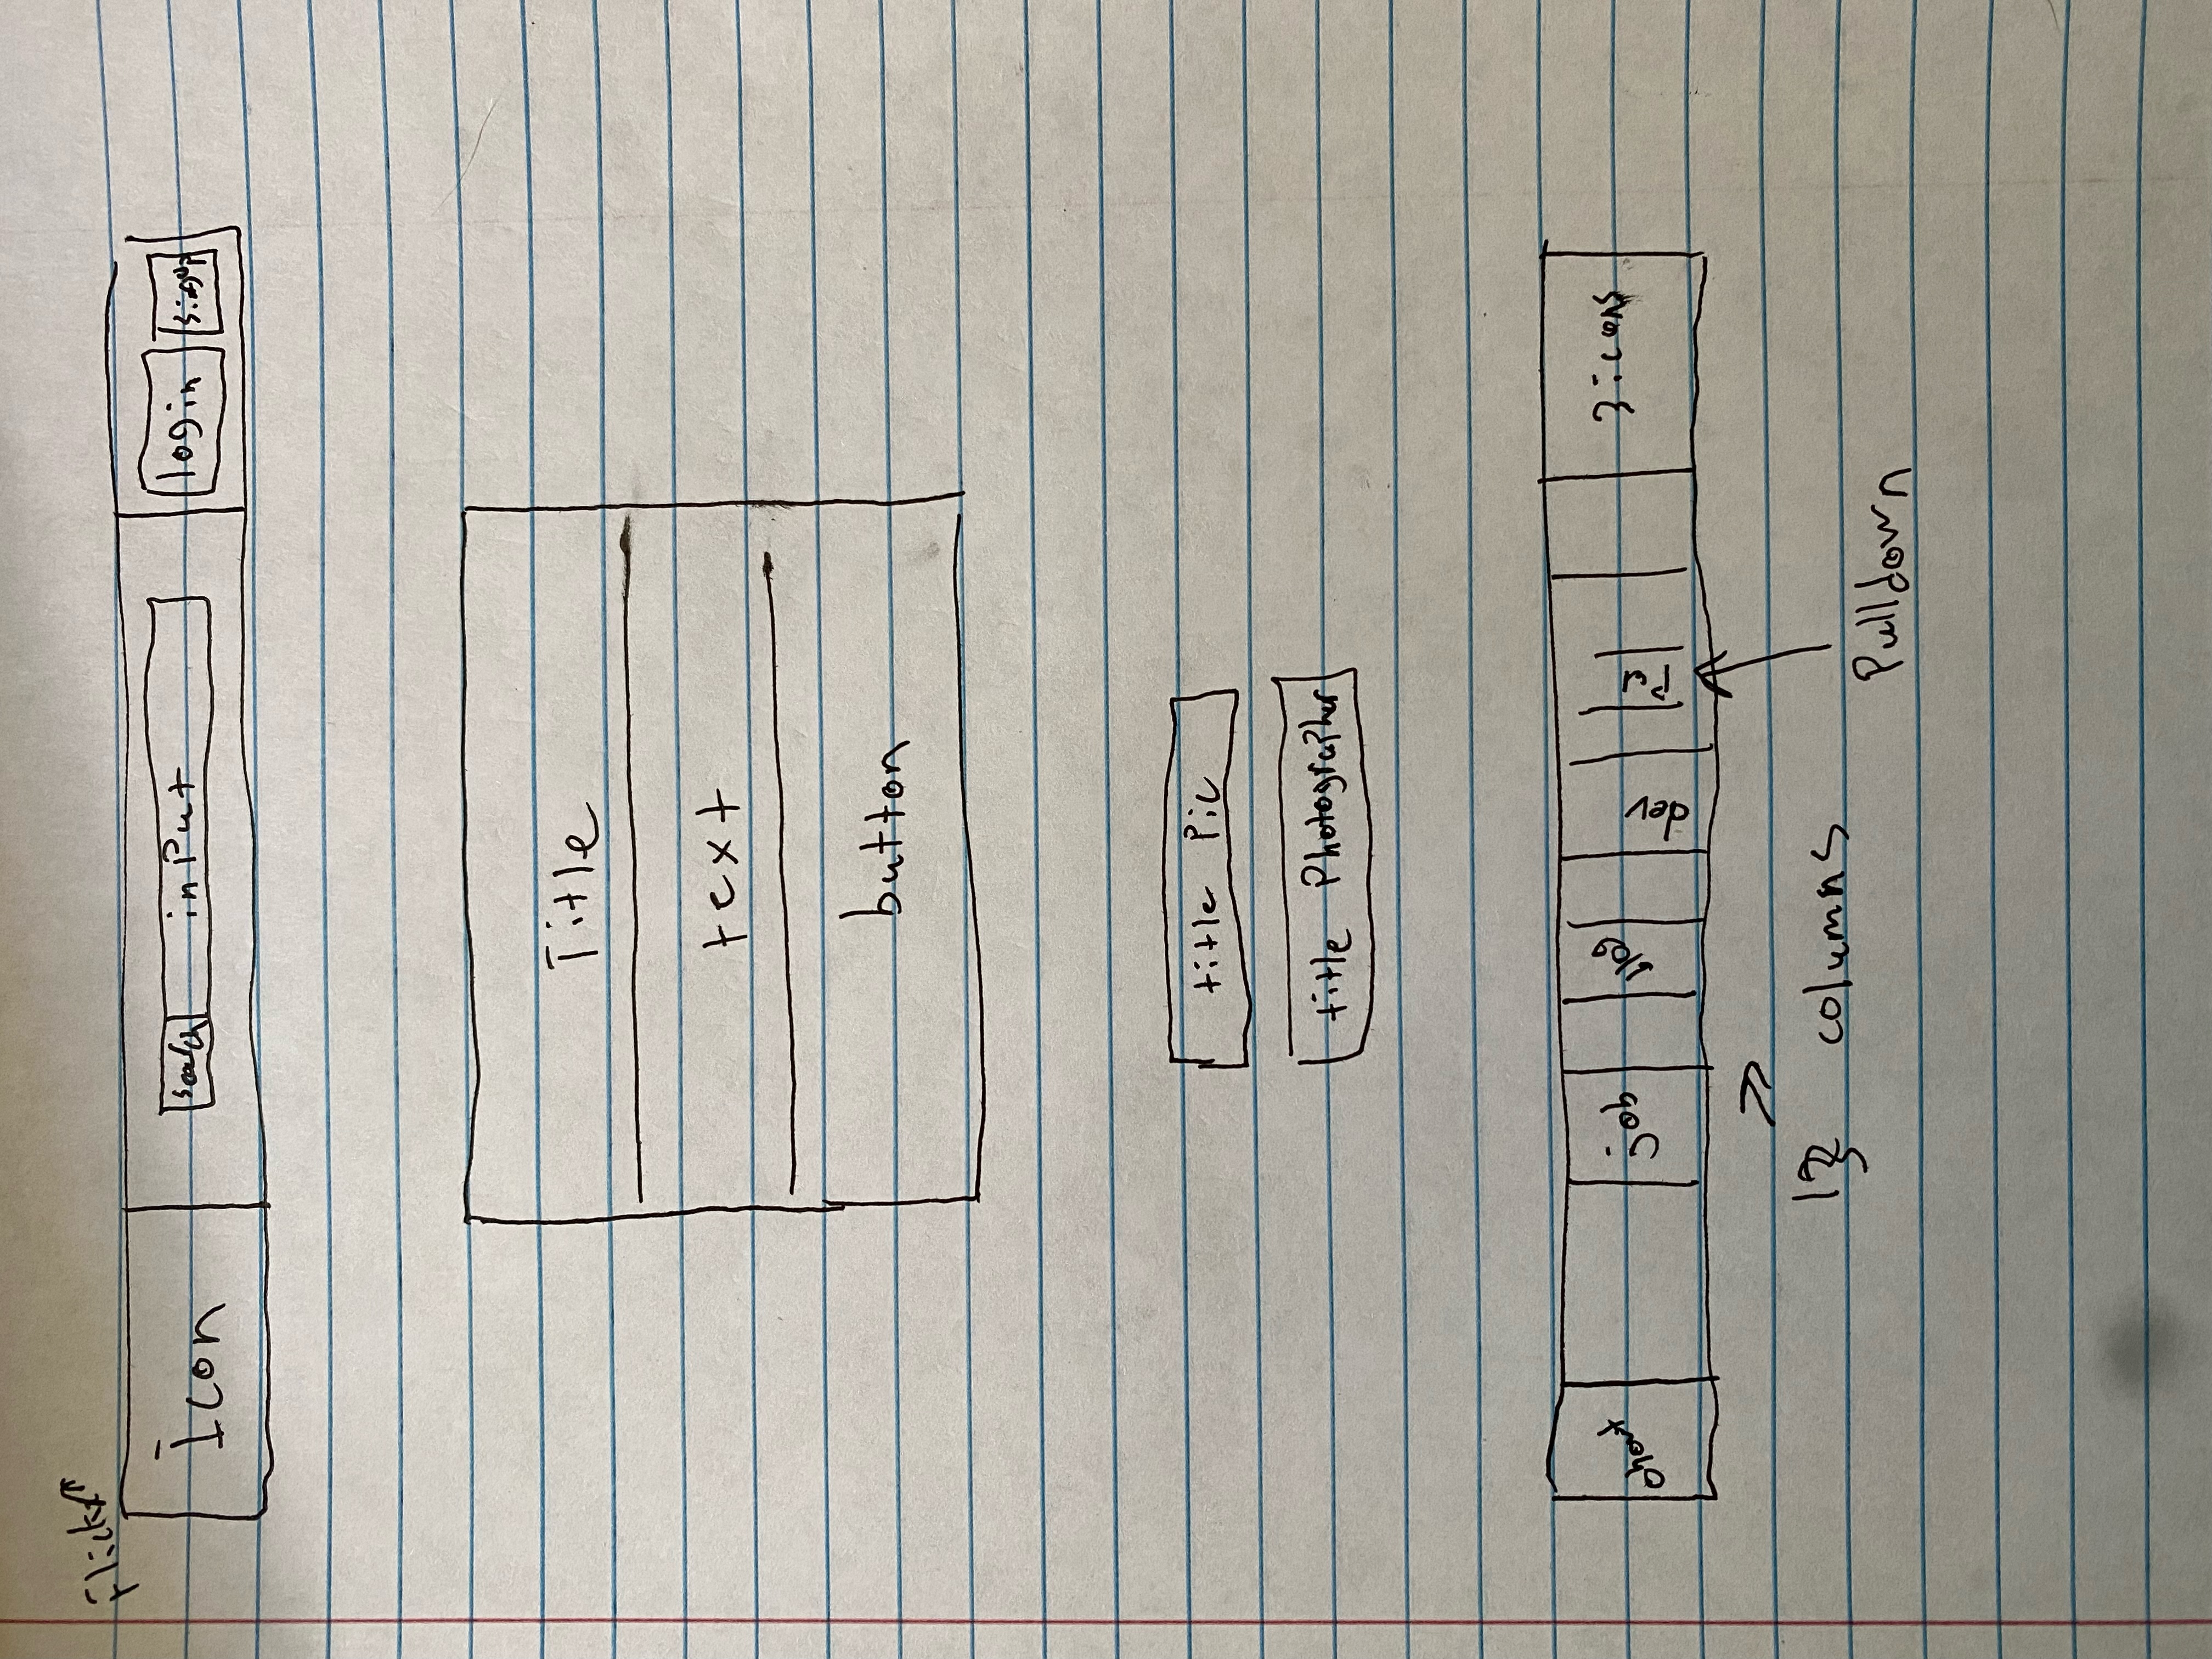 Flickr
Icon search inPut login
Title
text
button
title Pic
title Photographer
about job blog dev Pul 3 icons
columns
Pulldown